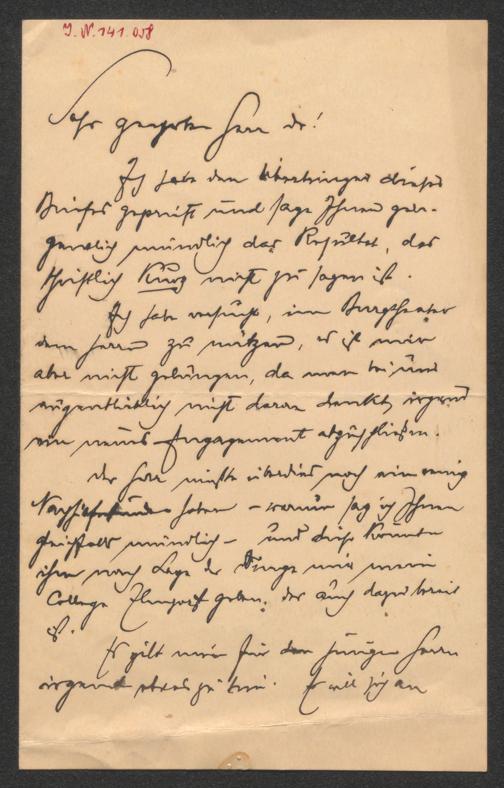 J. N. 141.058
Sehr geehrter Herr Dr!
Ich habe den Überbringer dieses
Briefes geprüft und sage Ihnen gele-
gentlich mündlich das Resultat, das
schriftlich kurz nicht zu sagen ist.
Ich habe versucht, im Burgtheater
dem Herrn zu nützen, es ist mir
aber nicht gelungen, da man bei uns
augenblicklich nicht daran denkt, irgend
ein neues Engagement abzuschließen.
Der Herr müßte überdies noch ein wenig
haben – warum sag ich Ihnen
mündlich – und diese könnte
ihm nach Lage der Dinge nur mein
College geben, der auch dazu bereit
ist.
Es gilt nun für den jungen Herrn
irgend etwas zu tun. Er will sich an